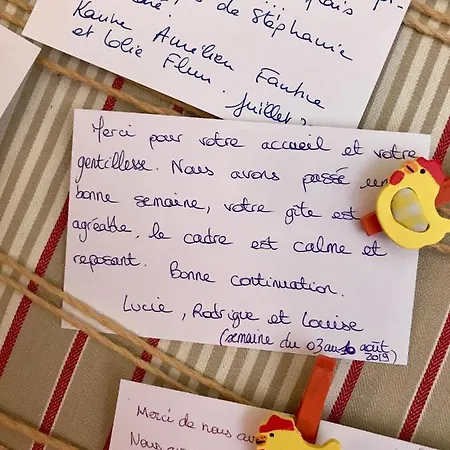 de Stéphanie
Karine Aurélien Fantine
et Lolie Fleur.
Juillet
Merci pour votre accueil et votre
gentillesse. Nous avons passée une
bonne semaine, votre gîte est
agréable, le cadre est calme et
reposant. Bonne continuation.
Lucie, Rodrigue et Louise
(semaine du 03 au 10 août
2019)
Merci de nous
Nous